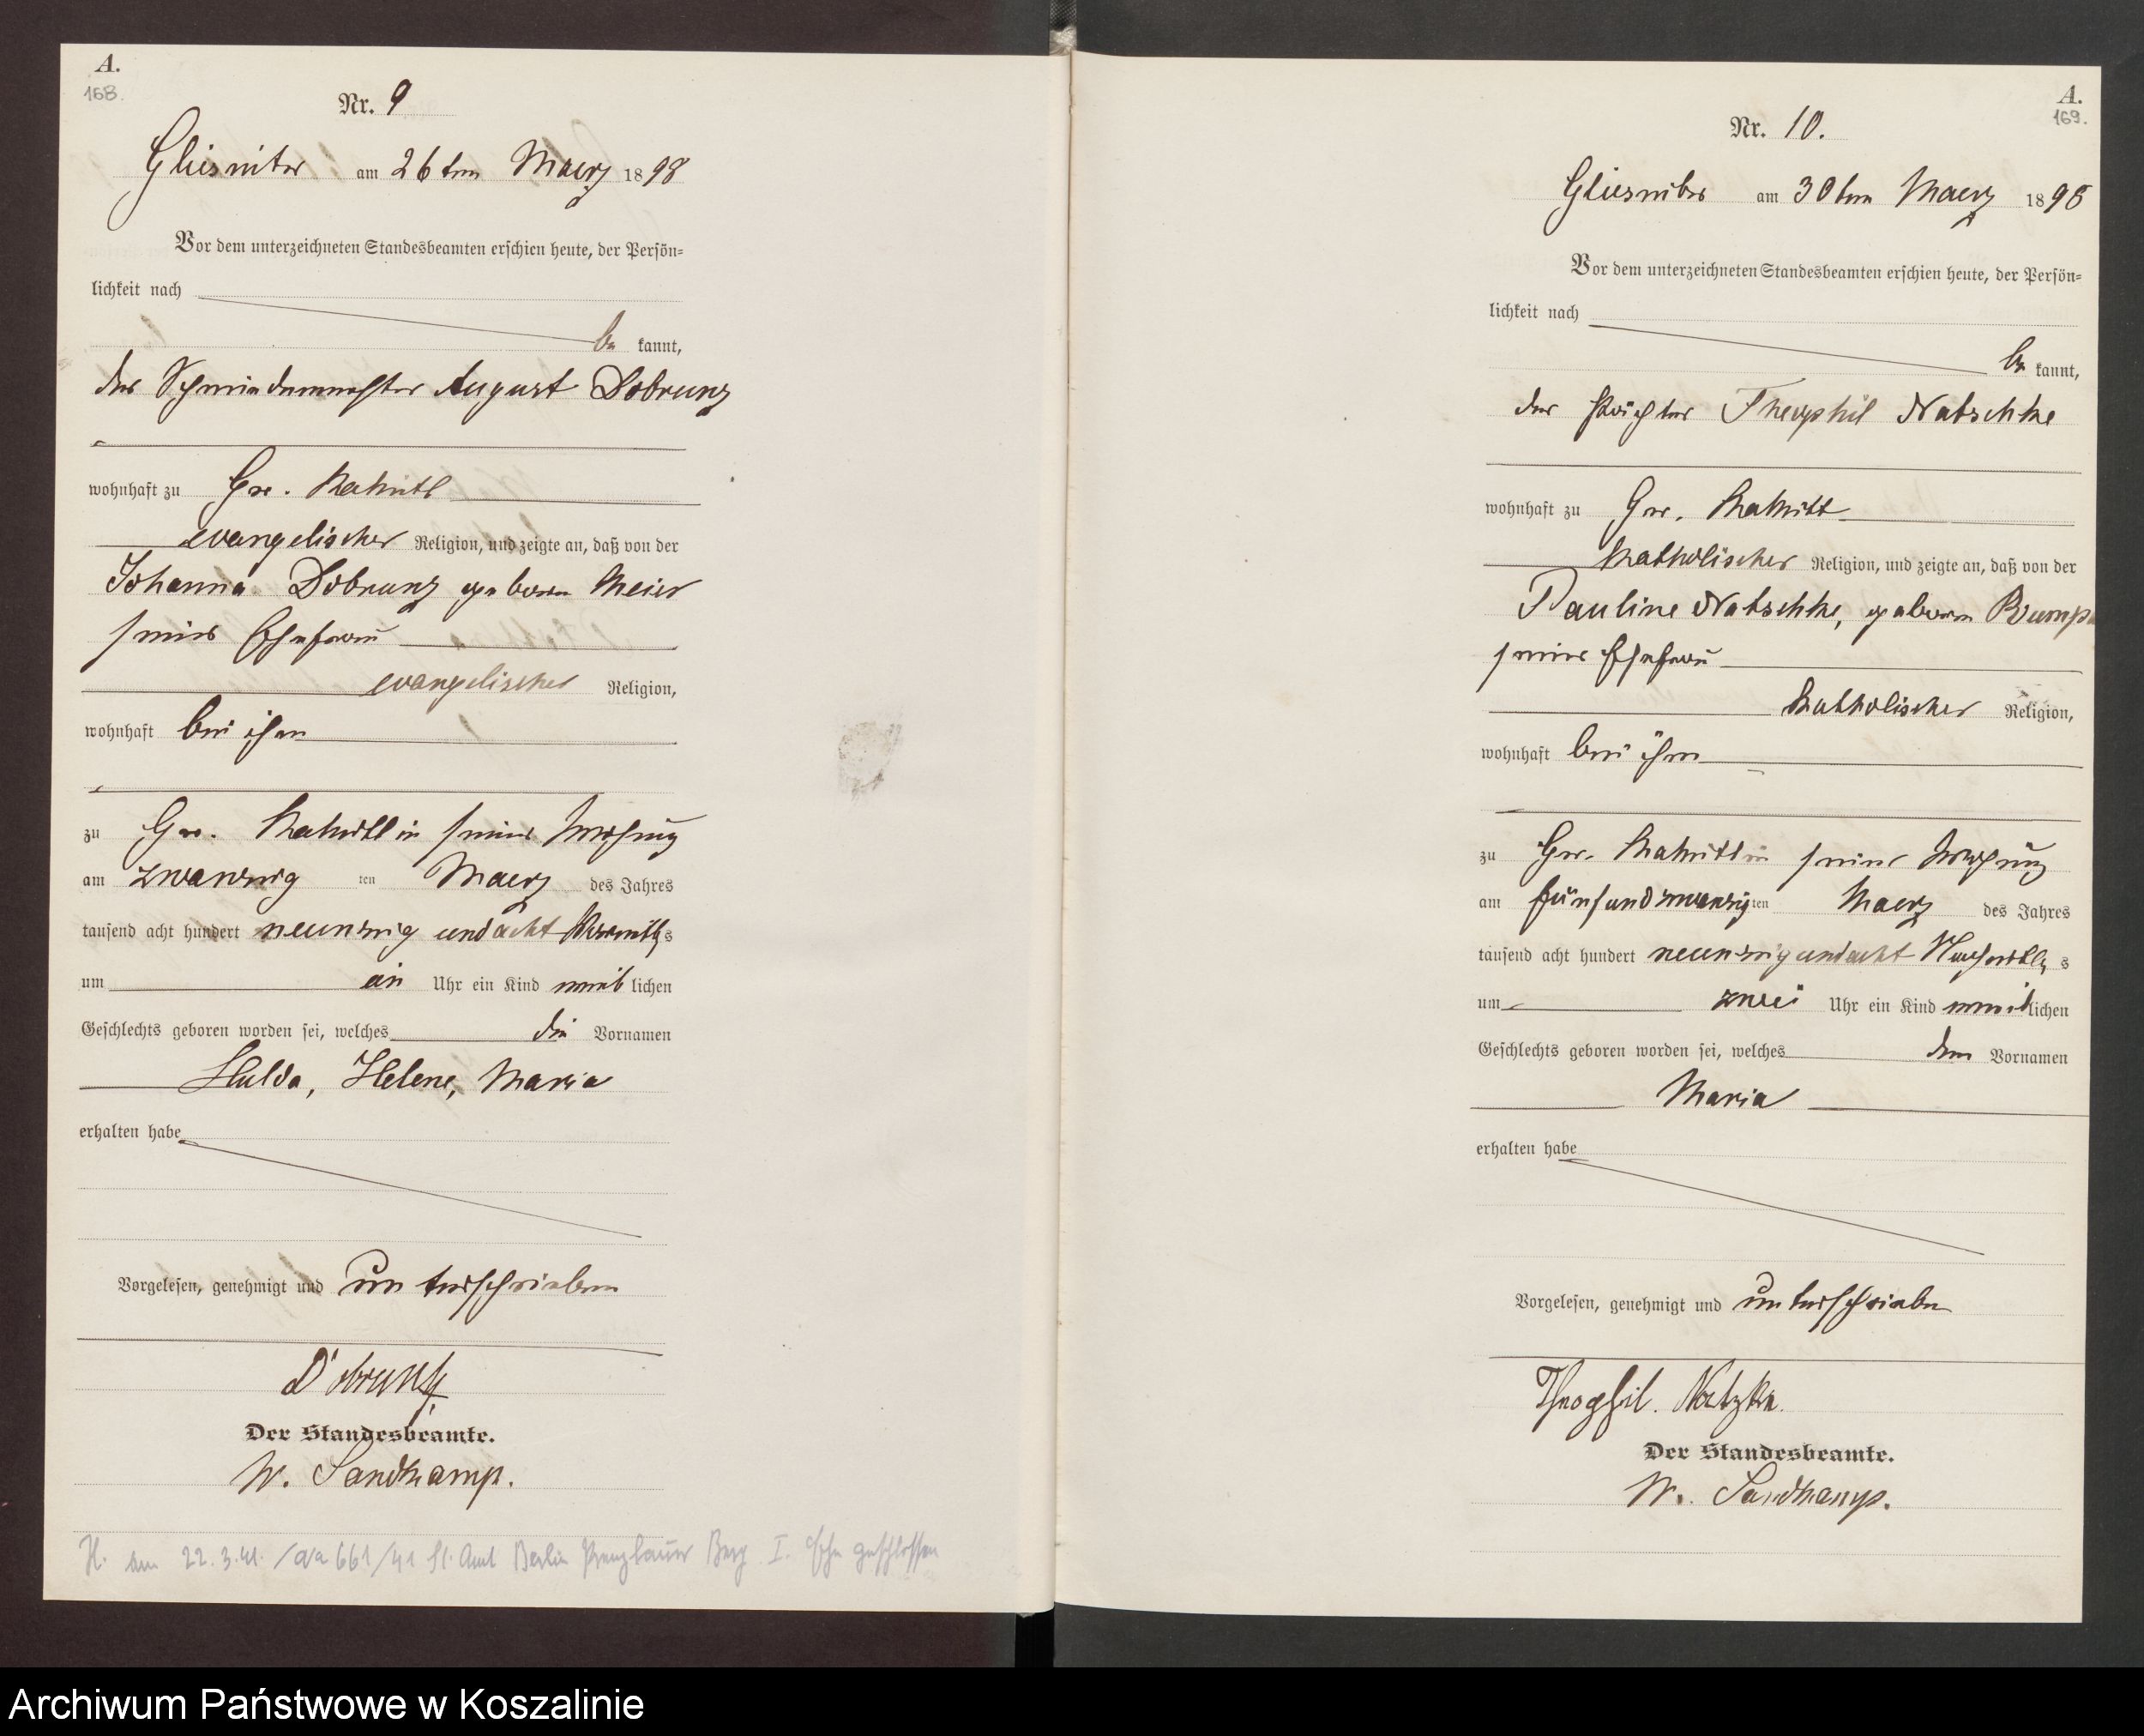 A.
168.
Nr. 9
Gliesnitz am 26ten Maerz 1898
Vor dem unterzeichneten Standesbeamten erschien heute, der Persön-
lichkeit nach
be kannt,
der Schmiedemeister August Dobrunz
wohnhaft zu Gr. Rakitt
evangelischer Religion, und zeigte an, daß von der
Johanna Dobrunz geboren Meier
seiner Ehefrau
evangelischer Religion,
wohnhaft bei ihm
zu Gr. Rakitt in seiner Wohnung
am zwanzig ten Maerz des Jahres
tausend acht hundert neunzig und acht Vormittags
um ein Uhr ein Kind weiblichen
Geschlechts geboren worden sei, welches die Vornamen
Hulda, Helene, Maria
erhalten habe
Vorgelesen, genehmigt und unterschrieben
Dobrunz
Der Standesbeamte.
W. Sandkamp.
H. am 22.3.41. /Va 661/41 St. Amt Berlin Prenzlauer Berg I. Ehe geschlossen
A.
169.
Nr. 10.
Gliesnitz am 30ten Maerz 1898
Vor dem unterzeichneten Standesbeamten erschien heute, der Persön-
lichkeit nach
be kannt,
der Pächter Theophil Natschke
wohnhaft zu Gr. Rakitt
katholischer Religion, und zeigte an, daß von der
Pauline Natschke, geboren
seiner Ehefrau
katholischer Religion,
wohnhaft bei ihm
zu Gr. Rakitt in seiner Wohnung
am fünfundzwanzigten Maerz des Jahres
tausend acht hundert neunzig und acht Nachmittags
um zwei Uhr ein Kind weiblichen
Geschlechts geboren worden sei, welches den Vornamen
Maria
erhalten habe
Vorgelesen, genehmigt und unterschrieben
Theophil. Natzke.
Der Standesbeamte.
W. Sandkamp.
Archiwum Państwowe w Koszalinie